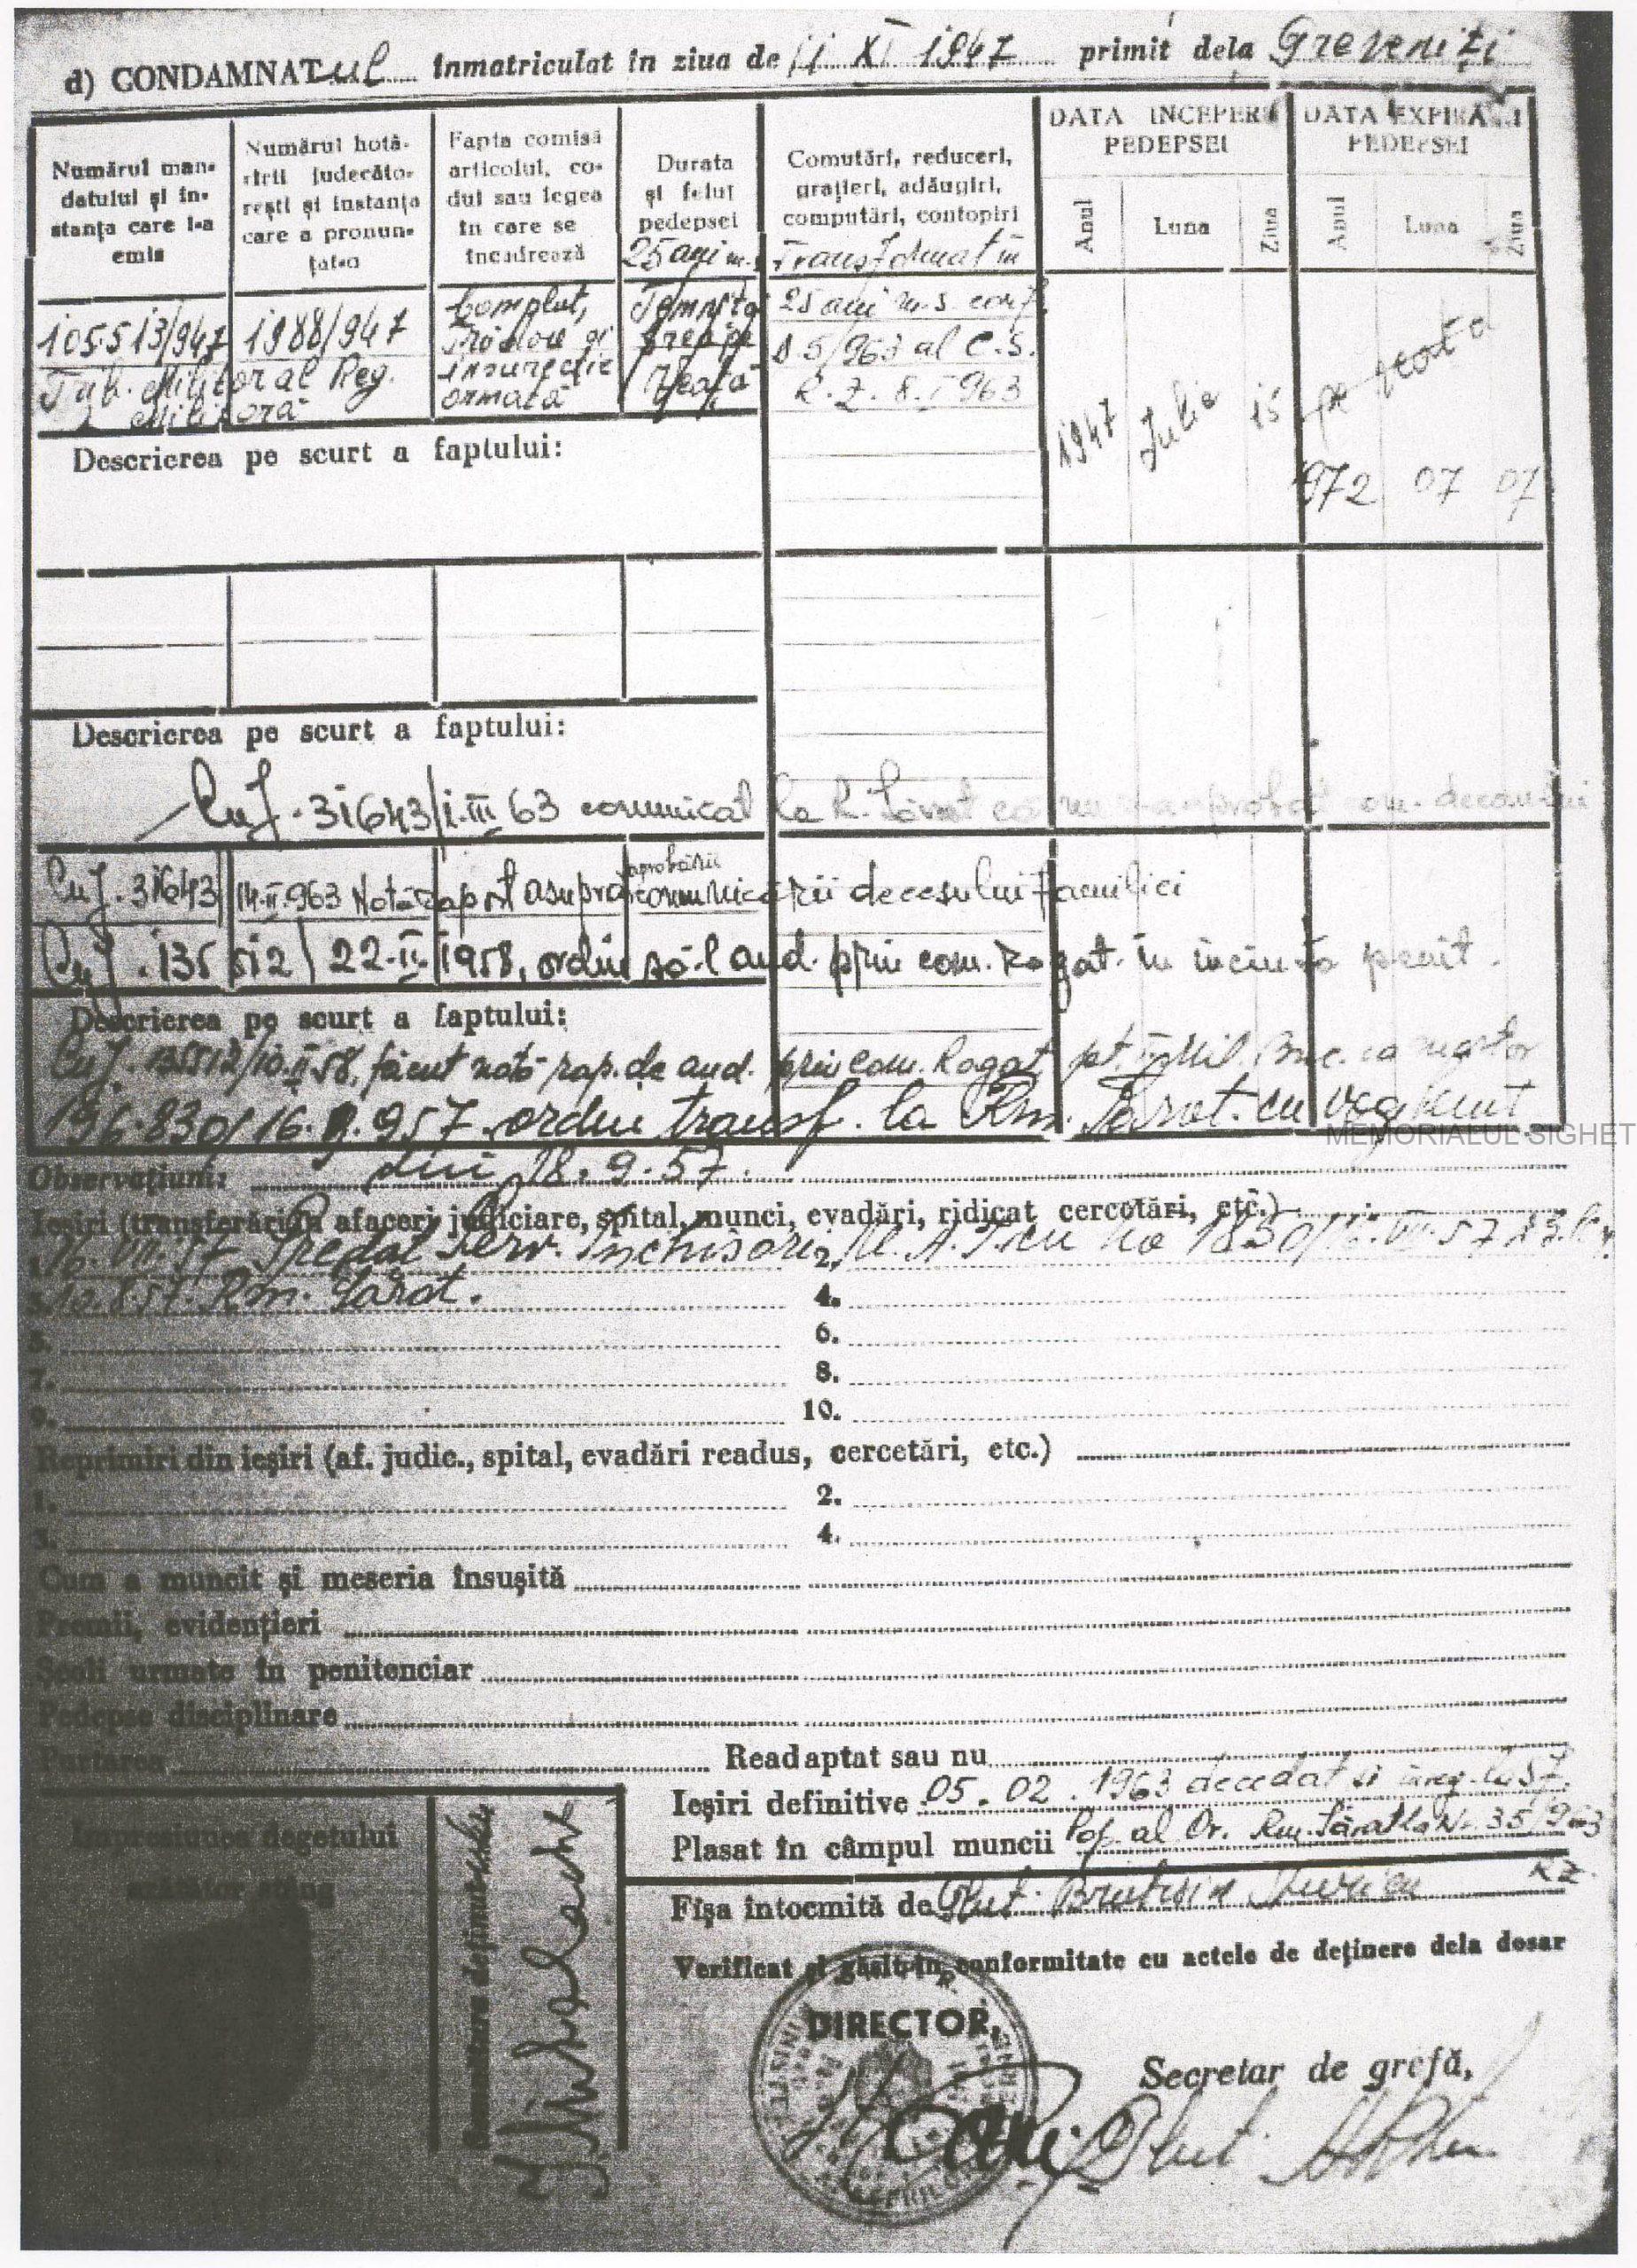 d) CONDAMNATul înmatriculat în ziua de 11 XI 1947 primit dela Greveniți
Numărul mandatului și instanța care l-a emis
Numărul hotărîrii judecătorești și instanța care a pronunțat-o
Fapta comisă articolul, codul sau legea în care se încadrează
Durata și felul pedepsei
Comutări, reduceri, grațieri, adăugiri, computări, contopiri
DATA INCEPERII PEDEPSEI
DATA EXPIRĂRII PEDEPSEI
Anul Luna Ziua Anul Luna Ziua
25 ani m. Transformat în
105513/947 1988/947 Complot, Temnița 25 ani m.s. conf.
Trădare și grea pe D 5/963 al C.S.
Trib. Militar al Reg. insurecție viață R. Z. 8.I 963
2 Militară armată
1947 Iulie 15 pe viață
Descrierea pe scurt a faptului:
972 07 07
Descrierea pe scurt a faptului:
Cu J. 31643/1.III 63 comunicat la R. Sărat că nu s-a aprobat decesului
Cu J. 31643 14.II.963 Notă raport asupra aprobării comunicării decesului familiei
Cu J. 135512/22.II.1958, ordin să-l aud. prin com. Rogat. în incinta penit.
Descrierea pe scurt a faptului:
Cu J. 135512/10.II.58, făcut notă rap. de aud. prin com. Rogat. pt. Mil. Buc. ca martor
196.830/16.9.957 ordin transf. la Rm. Sărat. cu
Observațiuni: din 18.9.57.
Ieșiri (transferări în afaceri judiciare, spital, munci, evadări, ridicat cercetări, etc.)
1. 16.VII.57 Spedat Serv. Inchisori 2. M.A.I. cu No 1830/
3. 10.8.57. Rm. Sărat. 4.
5. 6.
7. 8.
9. 10.
Reprimiri din ieșiri (af. judic., spital, evadări readus, cercetări, etc.)
1. 2.
3. 4.
Cum a muncit și meseria însușită
Premii, evidențieri
Școli urmate în penitenciar
Pedepse disciplinare
Purtarea Readaptat sau nu
Ieșiri definitive 05.02.1963 decedat și înreg. la Sf.
Plasat în câmpul muncii Pop. al Or. Rm. Sărat la Nr. 35/963
Impresiunea degetului
arătător stâng
Semnătura deținutului
Mihalache
Fișa întocmită de
Verificat și găsit în conformitate cu actele de deținere dela dosar
DIRECTOR,
Secretar de grefă,
MEMORIALUL SIGHET